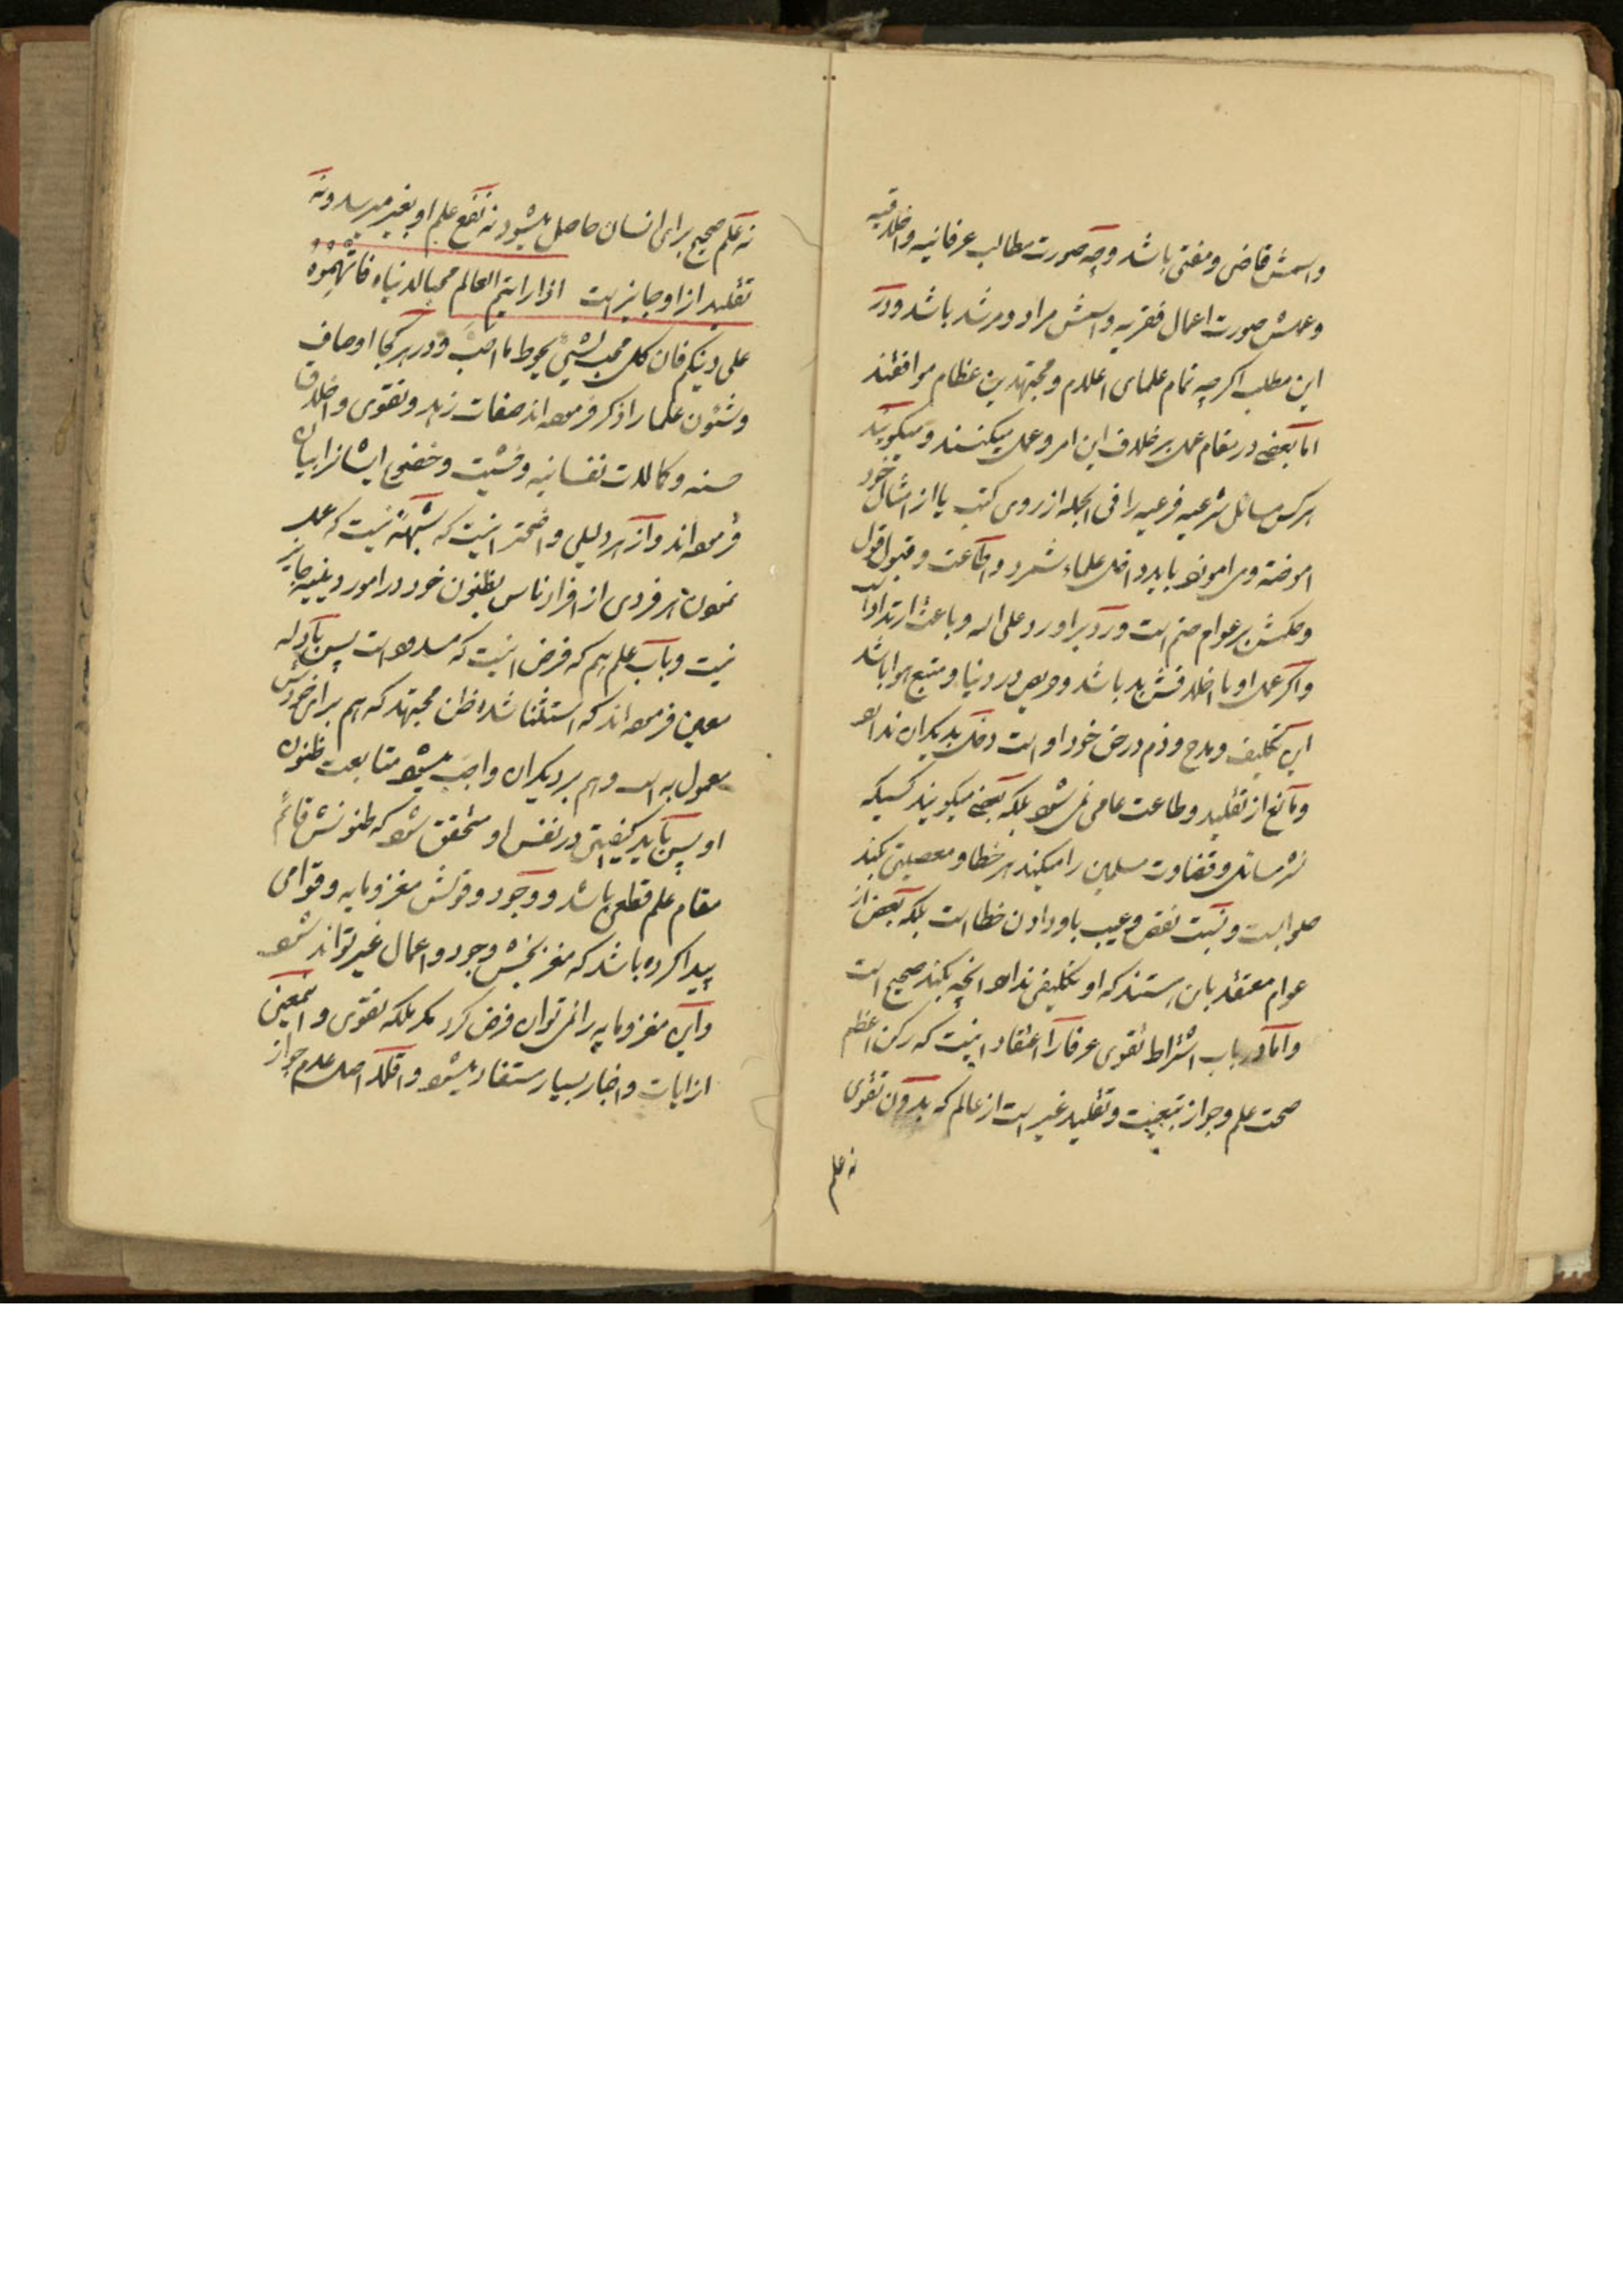 واسمش قاضی و مفتی باشد وچه صورت مطالب عرفانیه و اخلاقیه
وعملش صورت اعمال فقریه و اسمش مراد و مرشد باشد ودر
این مطلب اکرچه تمام علمای اعلام و مجتهدین عظام موافقند
اما بعضی در مقام عمل برخلاف این امر وعمل میکنند ومیکویند
هرکس مسائل شرعیه فرعیه را فی الجمله از روی کتب یا از امثال خود
اموخته باید داخل علماء شمرد و اطاعت و قبول قول
وحکمش بر عوام حتم است ورد بر او رد علی الله و باعث ارتداد
واکر عمل او با اخلاقش بد باشد وحریص در دنیا و متبع هوا باشد
این تکلیف ومدح وذم در حق خود اوست دخلی بدیکران ندارد
ومانع از تقلید وطاعت عامی نمی شود بلکه بعضی میکویند کسیکه
نشر مسائل و قضاوت مسلمین را میکند هر خطا و معصیتی بکند
صوابست ونسبت نقص وعیب باو دادن خطا است بلکه بعض از
عوام معتقد بان هستند که او تکلیفی ندارد انچه بکند صحیح است
واما در باب اشتراط تقوی عرفا را اعتقاد اینست که رکن اعظم
صحت علم وجواز تبعیت وتقلید غیر است از عالم که بدون تقوی
نه علم
نه علم صحیح برای انسان حاصل میشود نه نفع علم او بغیر میرسد ونه
تقلید از او جایز است اذا رایتم العالم محبا لدنیاه فاتهموه
علی دینکم فان کل محب لشیئ یحوط ما احب ودر هر کجا اوصاف
وشئون علما را ذکر فرموده اند صفات زهد وتقوی و اخلاق
حسنه وکمالات نفسانیه وخشیت وخضوع ایشانرا بیان
فرموده اند واز هر دلیلی واضحتر اینست که شبهه نیست که عمل
نمودن هر فردی از افراد ناس بظنون خود در امور دینیه جایز
نیست وباب علم هم که فرض اینست که مسدود است پس بادله
معین فرموده اند که استثنا شده ظن مجتهد که هم برای خودش
معمول به است وهم بر دیکران واجب میشود متابعت ظنون
او پس باید کیفیتی در نفس او متحقق شود که ظنونش قائم
مقام علم قطعی باشد ووجود وقولش مغز ومایه وقوامی
پیدا کرده باشد که مغز بخش وجود واعمال غیر تواند شود
واین مغز ومایه را نمی توان فرض کرد مکر بملکه تقوی و اینمعنی
از ایات واخبار بسیار مستفاد میشود واقلا اصل عدم جواز